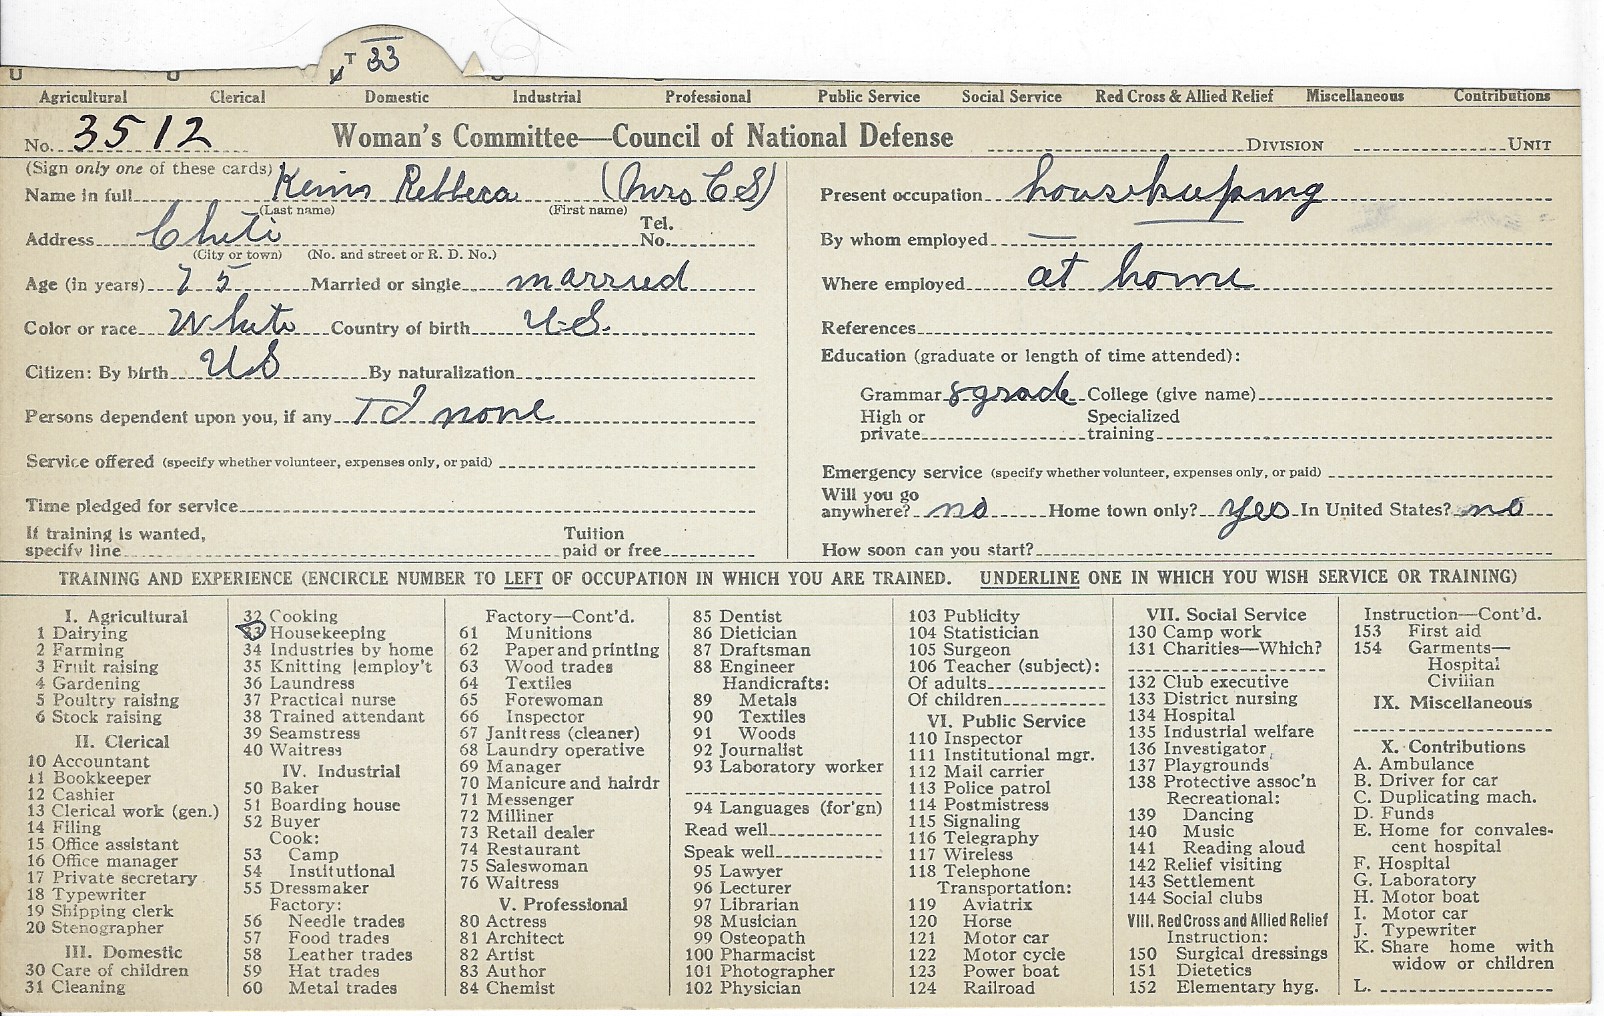 T 33
Agricultural Clerical Domestic Industrial Professional Public Service Social Service Red Cross & Allied Relief Miscellaneous Contributions
No. 3512 Woman's Committee—Council of National Defense DIVISION UNIT
(Sign only one of these cards)
Name in full Rebbeca (Mrs C S)
(Last name) (First name)
Address Tel. No.
(City or town) (No. and street or R. D. No.)
Age (in years) 75 Married or single married
Color or race White Country of birth U.S.
Citizen: By birth US By naturalization
Persons dependent upon you, if any none
Service offered (specify whether volunteer, expenses only, or paid)
Time pledged for service
If training is wanted, Tuition
specify line paid or free
Present occupation housekeeping
By whom employed —
Where employed at home
References
Education (graduate or length of time attended):
Grammar 8 grade College (give name)
High or Specialized
private training
Emergency service (specify whether volunteer, expenses only, or paid)
Will you go
anywhere? no Home town only? yes In United States? no
How soon can you start?
TRAINING AND EXPERIENCE (ENCIRCLE NUMBER TO LEFT OF OCCUPATION IN WHICH YOU ARE TRAINED. UNDERLINE ONE IN WHICH YOU WISH SERVICE OR TRAINING)
I. Agricultural
1 Dairying
2 Farming
3 Fruit raising
4 Gardening
5 Poultry raising
6 Stock raising
II. Clerical
10 Accountant
11 Bookkeeper
12 Cashier
13 Clerical work (gen.)
14 Filing
15 Office assistant
16 Office manager
17 Private secretary
18 Typewriter
19 Shipping clerk
20 Stenographer
III. Domestic
30 Care of children
31 Cleaning
32 Cooking
33 Housekeeping
34 Industries by home
35 Knitting [employ't
36 Laundress
37 Practical nurse
38 Trained attendant
39 Seamstress
40 Waitress
IV. Industrial
50 Baker
51 Boarding house
52 Buyer
Cook:
53 Camp
54 Institutional
55 Dressmaker
Factory:
56 Needle trades
57 Food trades
58 Leather trades
59 Hat trades
60 Metal trades
Factory—Cont'd.
61 Munitions
62 Paper and printing
63 Wood trades
64 Textiles
65 Forewoman
66 Inspector
67 Janitress (cleaner)
68 Laundry operative
69 Manager
70 Manicure and hairdr
71 Messenger
72 Milliner
73 Retail dealer
74 Restaurant
75 Saleswoman
76 Waitress
V. Professional
80 Actress
81 Architect
82 Artist
83 Author
84 Chemist
85 Dentist
86 Dietician
87 Draftsman
88 Engineer
Handicrafts:
89 Metals
90 Textiles
91 Woods
92 Journalist
93 Laboratory worker
94 Languages (for'gn)
Read well
Speak well
95 Lawyer
96 Lecturer
97 Librarian
98 Musician
99 Osteopath
100 Pharmacist
101 Photographer
102 Physician
103 Publicity
104 Statistician
105 Surgeon
106 Teacher (subject):
Of adults
Of children
VI. Public Service
110 Inspector
111 Institutional mgr.
112 Mail carrier
113 Police patrol
114 Postmistress
115 Signaling
116 Telegraphy
117 Wireless
118 Telephone
Transportation:
119 Aviatrix
120 Horse
121 Motor car
122 Motor cycle
123 Power boat
124 Railroad
VII. Social Service
130 Camp work
131 Charities—Which?
132 Club executive
133 District nursing
134 Hospital
135 Industrial welfare
136 Investigator
137 Playgrounds
138 Protective assoc'n
Recreational:
139 Dancing
140 Music
141 Reading aloud
142 Relief visiting
143 Settlement
144 Social clubs
VIII. Red Cross and Allied Relief
Instruction:
150 Surgical dressings
151 Dietetics
152 Elementary hyg.
Instruction—Cont'd.
153 First aid
154 Garments—
Hospital
Civilian
IX. Miscellaneous
X. Contributions
A. Ambulance
B. Driver for car
C. Duplicating mach.
D. Funds
E. Home for convales-
cent hospital
F. Hospital
G. Laboratory
H. Motor boat
I. Motor car
J. Typewriter
K. Share home with
widow or children
L.